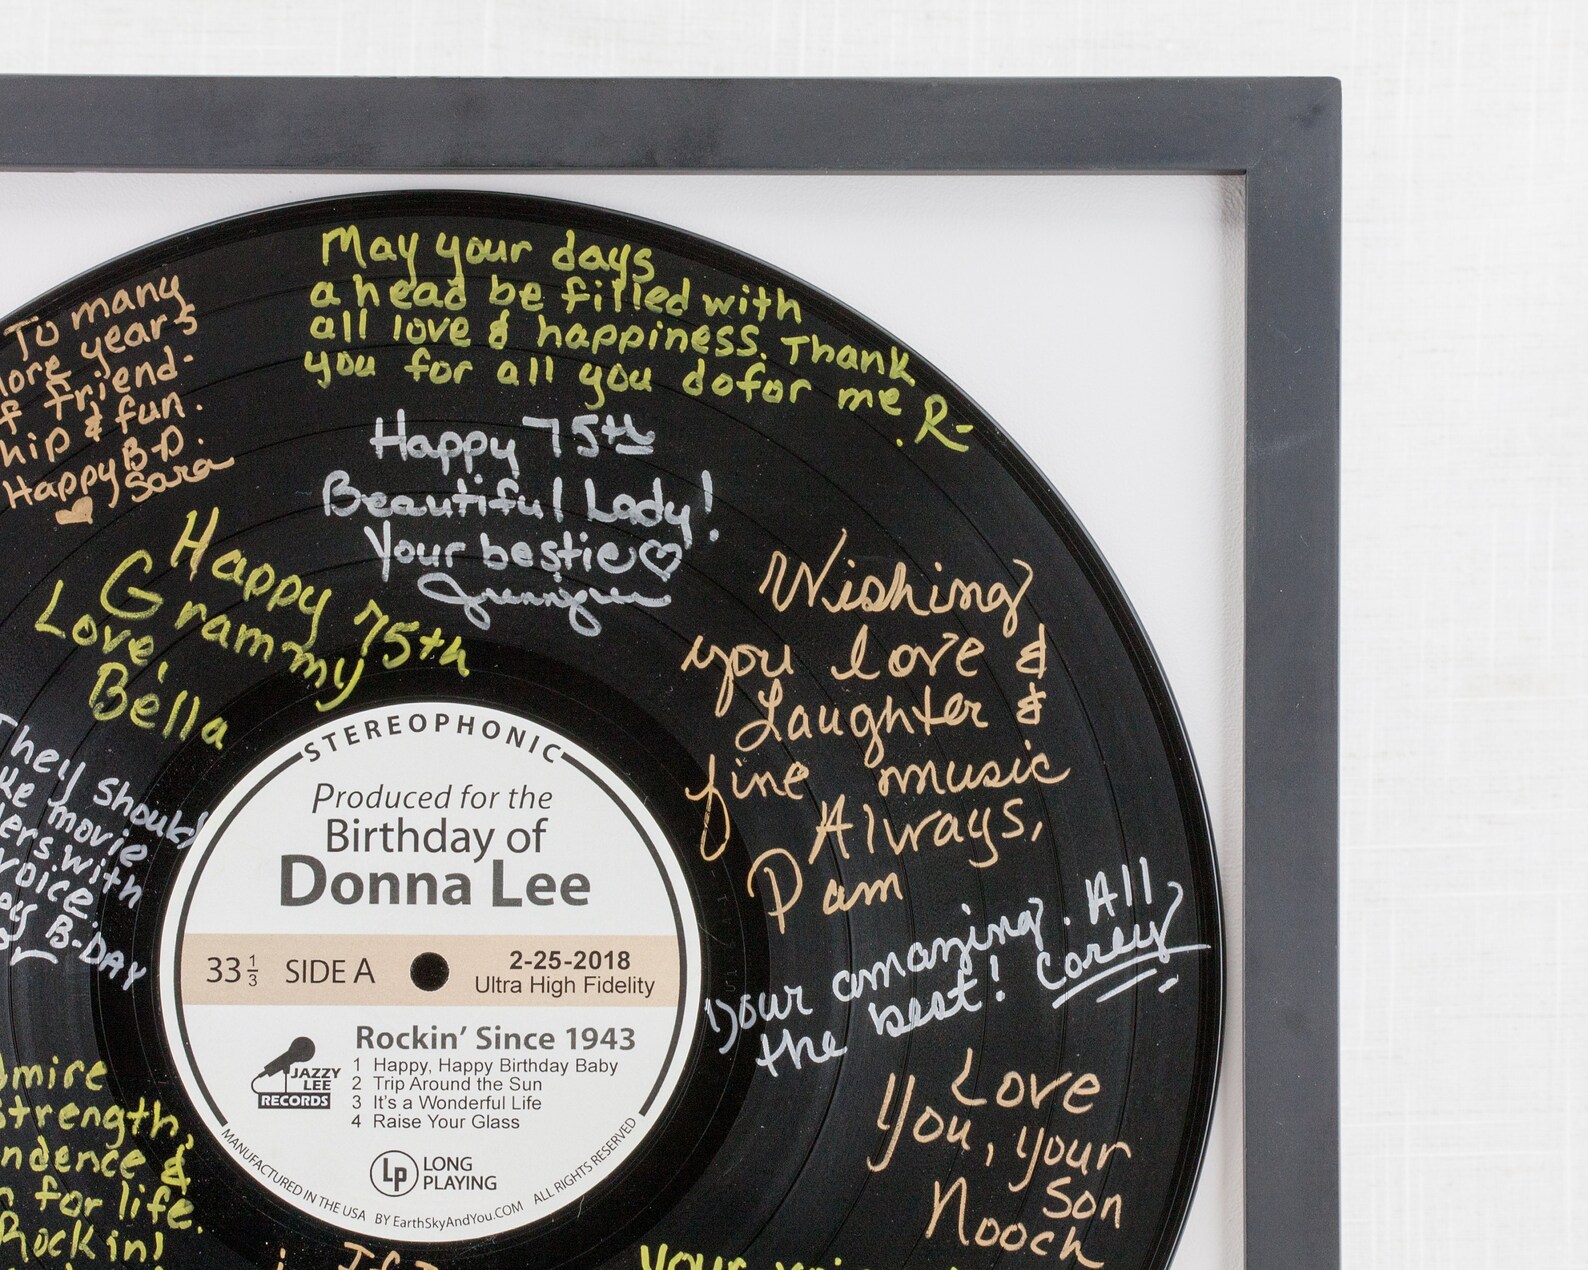 May your days
ahead be filled with
all love & happiness. Thank
you for all you do for me.
R-
To many
years
friend-
& fun.
Happy B-D.
Sara
Happy 75th
Beautiful Lady!
Your bestie
Happy 75th
Grammy
Love,
Bella
Wishing
you love &
Laughter &
fine music
Always,
Pam
They should
movie
with
voice.
B-DAY
Your amazing. All
the best! Corey
Love
You, your
Son
Nooch
strength,
&
for life.
Rockin!
STEREOPHONIC
Produced for the
Birthday of
Donna Lee
33 1/3 SIDE A
2-25-2018
Ultra High Fidelity
Rockin' Since 1943
1 Happy, Happy Birthday Baby
2 Trip Around the Sun
3 It's a Wonderful Life
4 Raise Your Glass
JAZZY
LEE
RECORDS
Lp LONG
PLAYING
MANUFACTURED IN THE USA BY EarthSkyAndYou.COM ALL RIGHTS RESERVED
If I
your